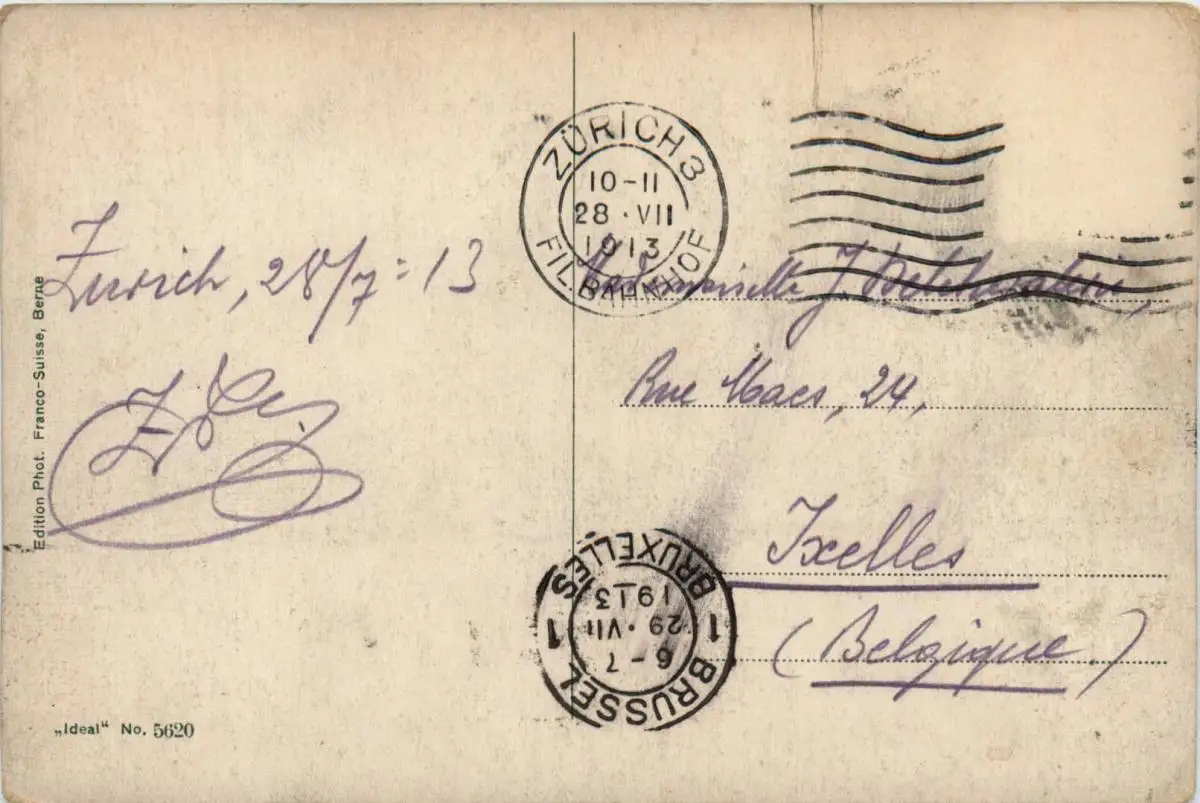 Edition Phot. Franco-Suisse, Berne
Zurich, 28/7=13
„Ideal“ No. 5620
ZÜRICH 3
10-11
28·VII
1913
FIL. BAHNHOF
Mademoiselle J
Rue Maes, 24,
Ixelles
(Belgique.)
BRUXELLES
1913
29·VII
6-7
1 BRUSSEL 1